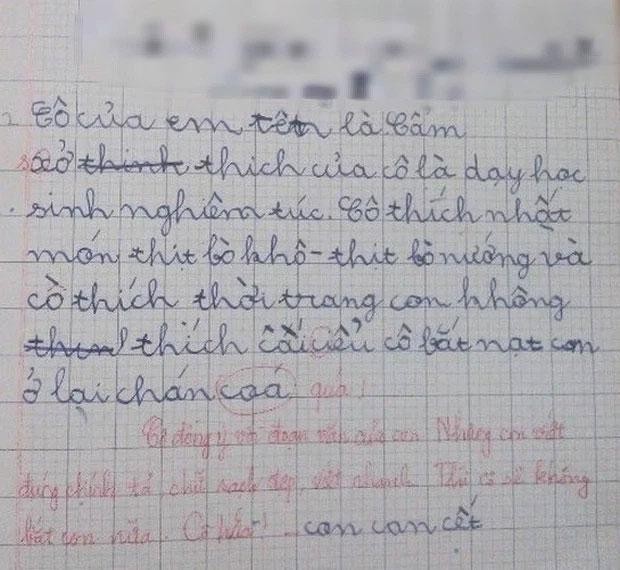 Cô của em tên là Cẩm
sở thinh thích của cô là dạy học
sinh nghiêm túc. Cô thích nhất
món thịt bò khô - thịt bò nướng và
cô thích thời trang con không
thích cái kiểu cô bắt nạt con
ở lại chán coá quá!
Cô đồng ý với đoạn văn của con Nhưng con viết
đúng chính tả chữ sạch đẹp, viết nhanh. Thì cô sẽ không
bắt con nữa. Cô hứa! con can cết